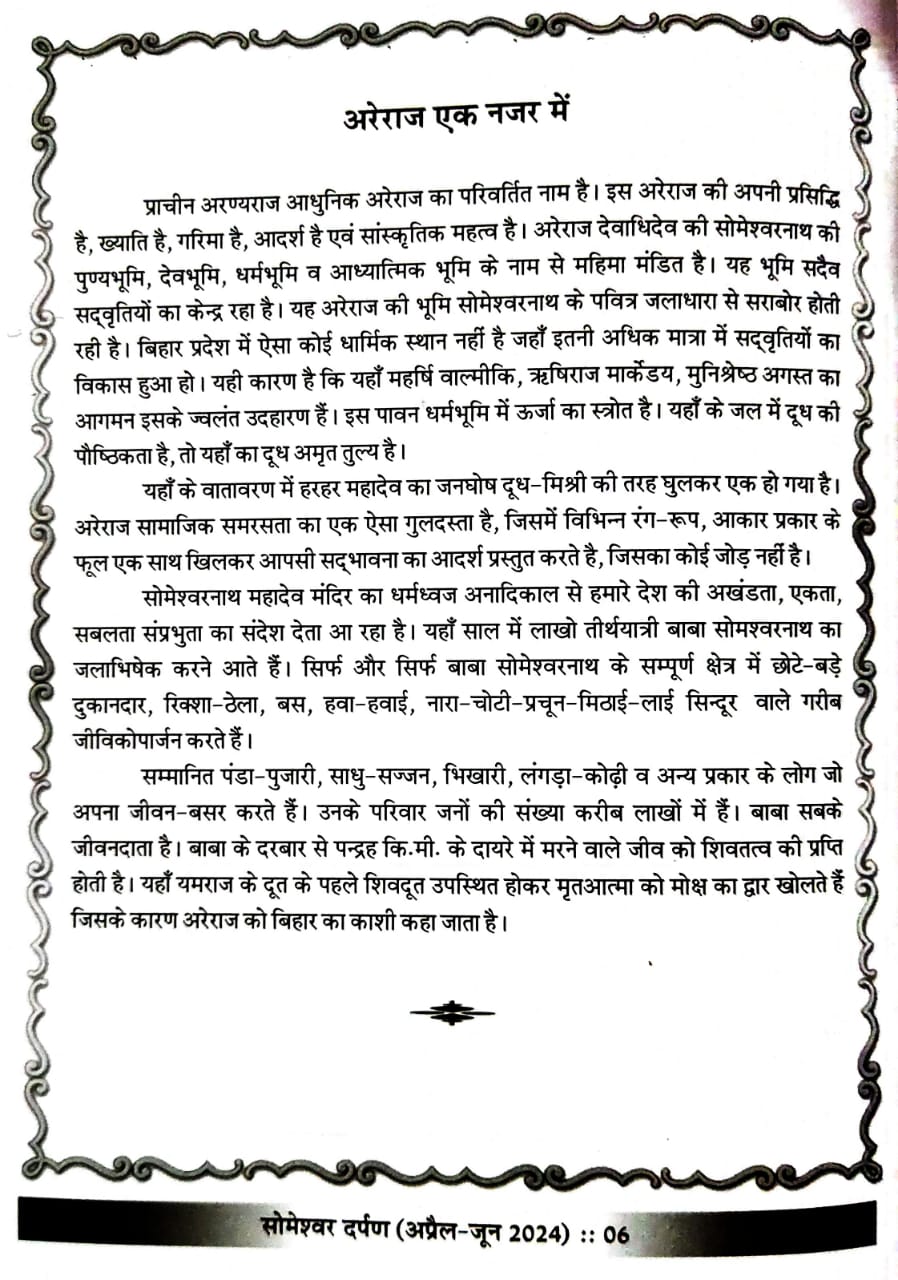 अरेराज एक नजर में
प्राचीन अरण्यराज आधुनिक अरेराज का परिवर्तित नाम है। इस अरेराज की अपनी प्रसिद्धि
है, ख्याति है, गरिमा है, आदर्श है एवं सांस्कृतिक महत्व है। अरेराज देवाधिदेव की सोमेश्वरनाथ की
पुण्यभूमि, देवभूमि, धर्मभूमि व आध्यात्मिक भूमि के नाम से महिमा मंडित है। यह भूमि सदैव
सद्वृतियों का केन्द्र रहा है। यह अरेराज की भूमि सोमेश्वरनाथ के पवित्र जलाधारा से सराबोर होती
रही है। बिहार प्रदेश में ऐसा कोई धार्मिक स्थान नहीं है जहाँ इतनी अधिक मात्रा में सद्वृतियों का
विकास हुआ हो। यही कारण है कि यहाँ महर्षि वाल्मीकि, ऋषिराज मार्केडय, मुनिश्रेष्ठ अगस्त का
आगमन इसके ज्वलंत उदहारण हैं। इस पावन धर्मभूमि में ऊर्जा का स्त्रोत है। यहाँ के जल में दूध की
पौष्ठिकता है, तो यहाँ का दूध अमृत तुल्य है।
यहाँ के वातावरण में हरहर महादेव का जनघोष दूध-मिश्री की तरह घुलकर एक हो गया है।
अरेराज सामाजिक समरसता का एक ऐसा गुलदस्ता है, जिसमें विभिन्न रंग-रूप, आकार प्रकार के
फूल एक साथ खिलकर आपसी सद्भावना का आदर्श प्रस्तुत करते है, जिसका कोई जोड़ नहीं है।
सोमेश्वरनाथ महादेव मंदिर का धर्मध्वज अनादिकाल से हमारे देश की अखंडता, एकता,
सबलता संप्रभुता का संदेश देता आ रहा है। यहाँ साल में लाखो तीर्थयात्री बाबा सोमश्वरनाथ का
जलाभिषेक करने आते हैं। सिर्फ और सिर्फ बाबा सोमेश्वरनाथ के सम्पूर्ण क्षेत्र में छोटे-बड़े
दुकानदार, रिक्शा-ठेला, बस, हवा-हवाई, नारा-चोटी-प्रचून-मिठाई-लाई सिन्दूर वाले गरीब
जीविकोपार्जन करते हैं।
सम्मानित पंडा-पुजारी, साधु-सज्जन, भिखारी, लंगड़ा-कोढ़ी व अन्य प्रकार के लोग जो
अपना जीवन-बसर करते हैं। उनके परिवार जनों की संख्या करीब लाखों में हैं। बाबा सबके
जीवनदाता है। बाबा के दरबार से पन्द्रह कि.मी. के दायरे में मरने वाले जीव को शिवतत्व की प्रप्ति
होती है। यहाँ यमराज के दूत के पहले शिवदूत उपस्थित होकर मृतआत्मा को मोक्ष का द्वार खोलते हैं
जिसके कारण अरेराज को बिहार का काशी कहा जाता है।
सोमेश्वर दर्पण (अप्रैल-जून 2024) :: 06